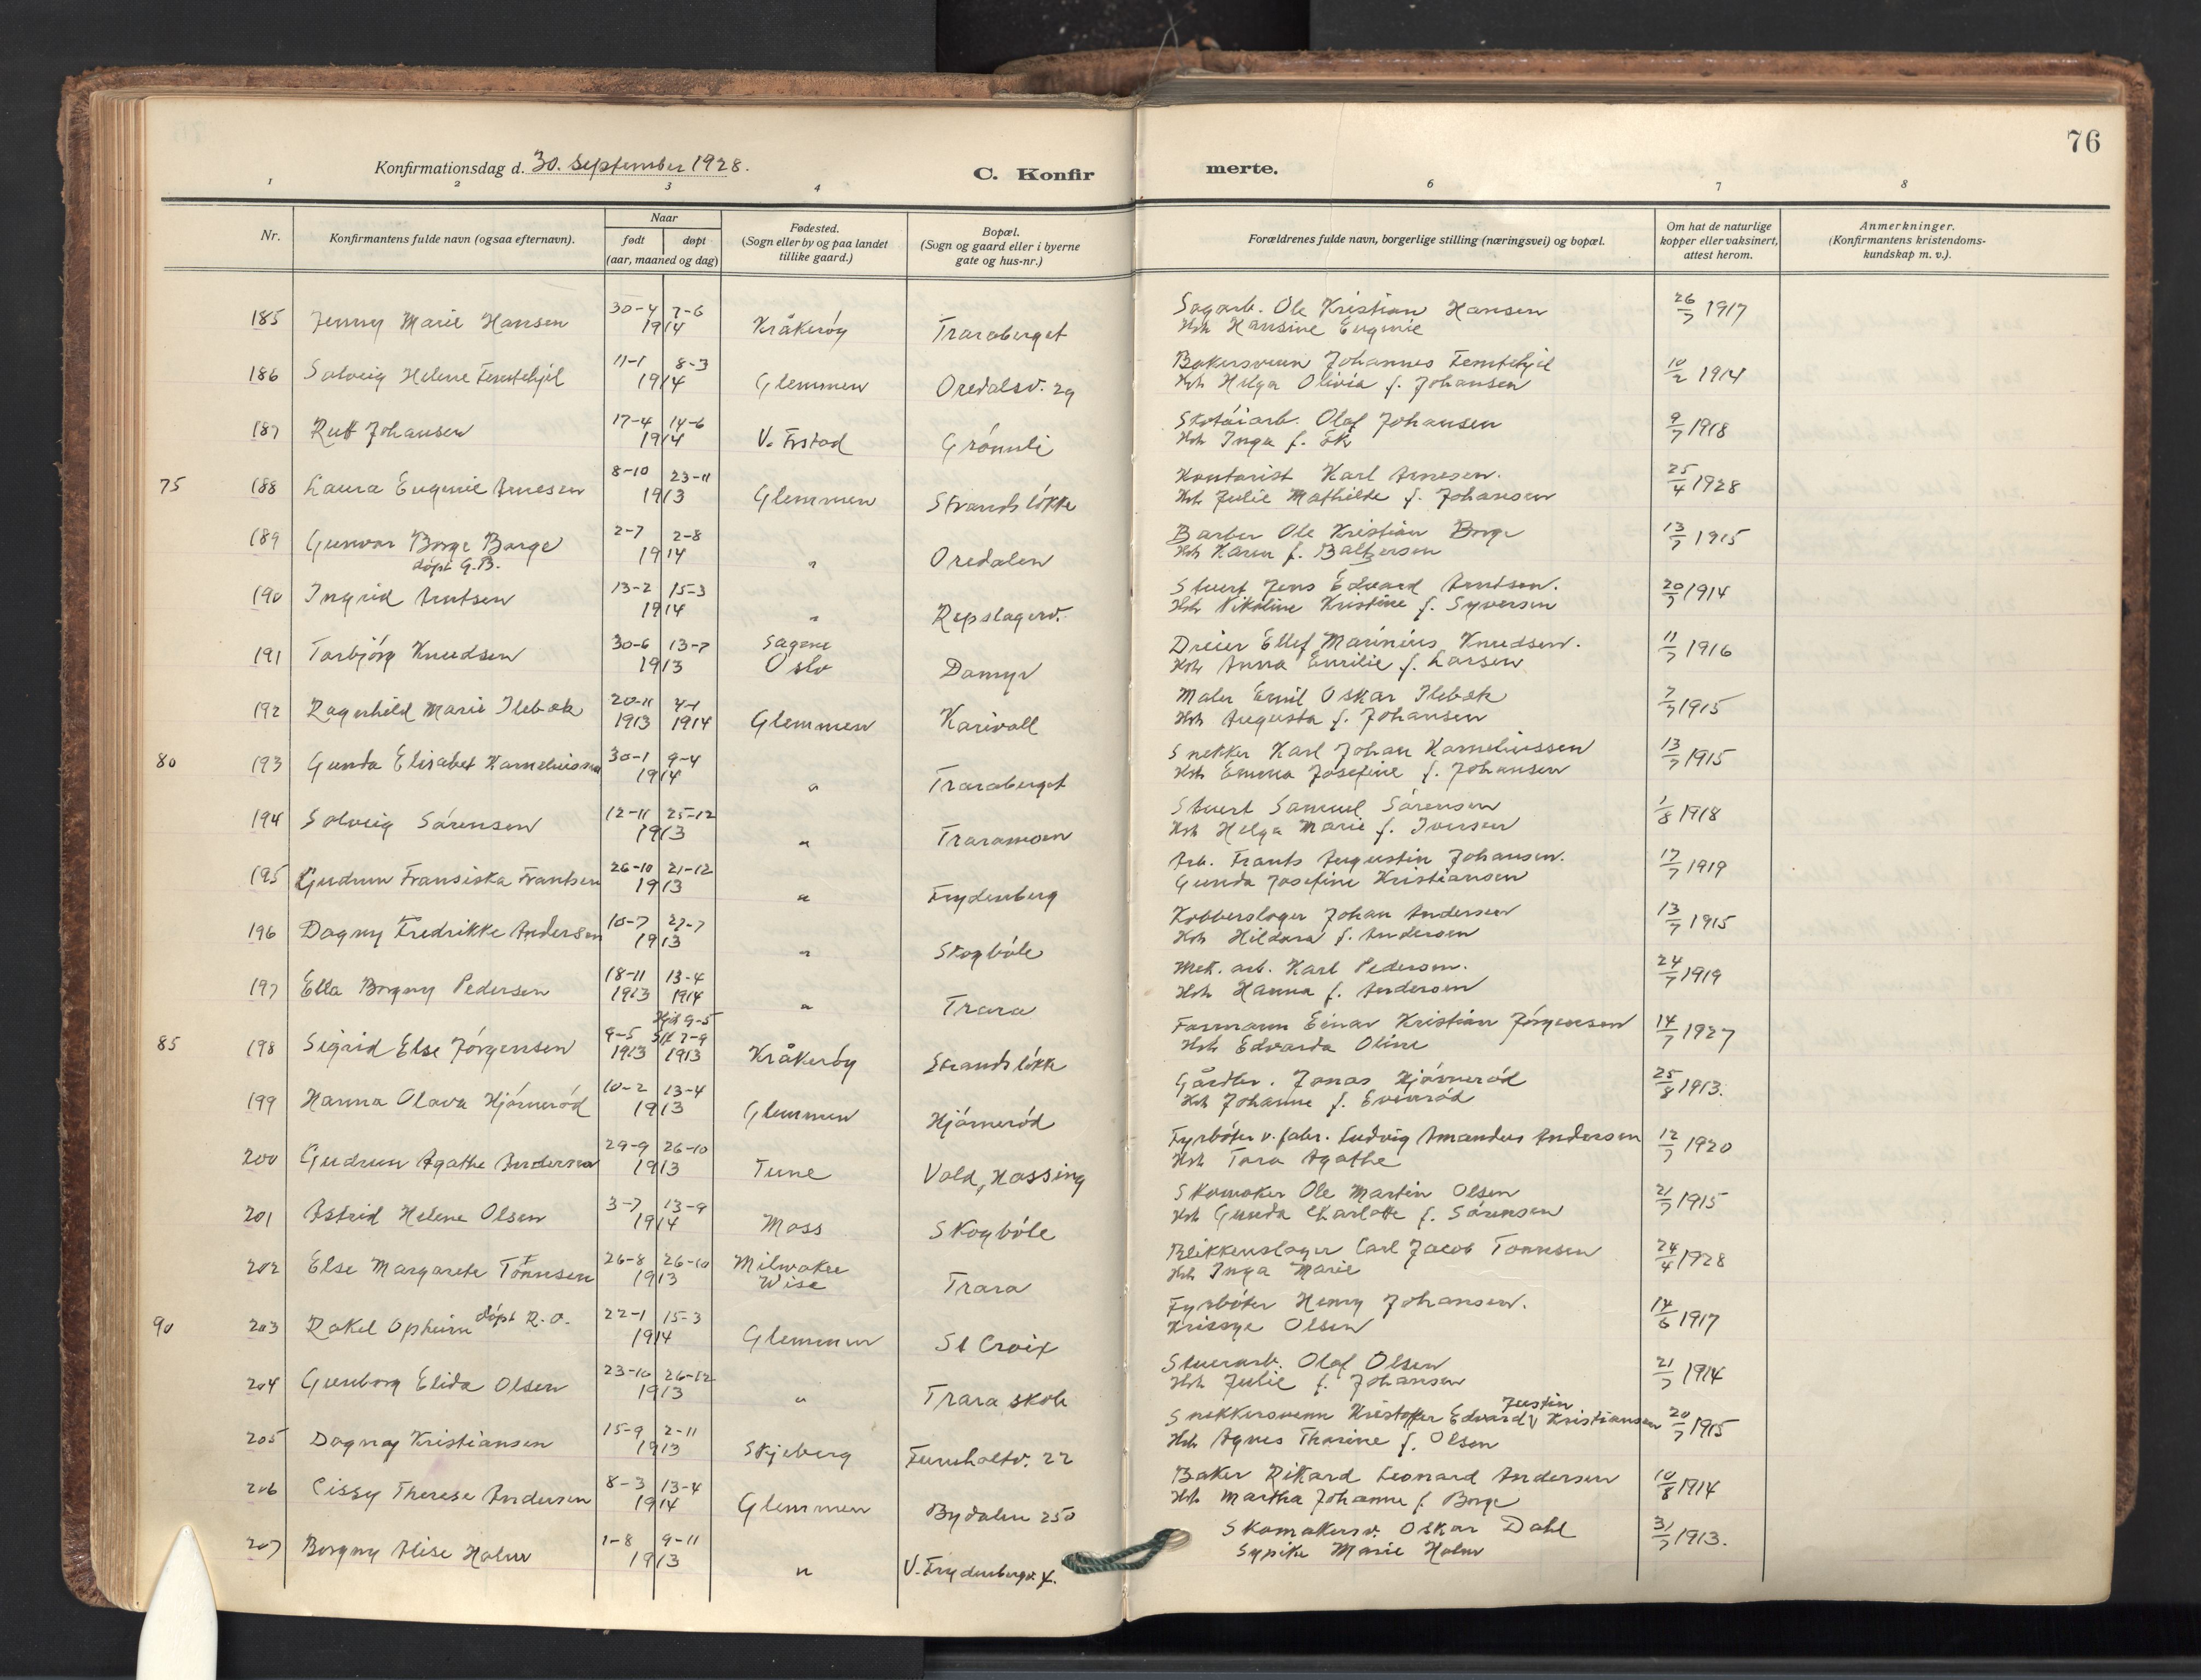 76
Konfirmationsdag d. 30. September 1928.
C. Konfir merte.
1 2 3 4 6 7 8
Nr.
Konfirmantens fulde navn (ogsaa efternavn).
Naar
født døpt
(aar, maaned og dag)
Fødested.
(Sogn eller by og paa landet
tillike gaard.)
Bopæl.
(Sogn og gaard eller i byerne
gate og hus-nr.)
Forældrenes fulde navn, borgerlige stilling (næringsvei) og bopæl.
Om hat de naturlige
kopper eller vaksinert,
attest herom.
Anmerkninger.
(Konfirmantens kristendoms-
kundskap m. v.).
185 Jenny Marie Hansen 30-4 7-6 1914 Kråkerøy Traraberget Sagarb. Ole Kristian Hansen 26/7 1917
Hst Hansine Eugenie
186 Solveig Helene Femtehjel 11-1 8-3 1914 Glemmen Oredalsv. 29 Bakersvenn Johannes Femtehjel 10/2 1914
Hst Helga Olivia f. Johansen
187 Rutt Johansen 17-4 14-6 1914 V. Frstad Grømli Skotøiarb. Olaf Johansen 9/7 1918
Hst Inga f. Ek
75 188 Laura Eugenie Arnesen 8-10 23-11 1913 Glemmen Strandsløkke Kontorist Karl Arnesen. 25/4 1928
Hst Julie Mathilde f. Johansen
189 Gunvor Borge Borge 2-7 2-8 1914 " Oredalen Barber Ole Kristian Borge 13/7 1915
døpt G.B. Hst Karen f. Baltzersen
190 Ingrid Arntsen 13-2 15-3 1914 " Repslagerv. Stuert Jens Edvard Arntsen. 20/7 1914
Hst Nikoline Kristine f. Syversen
191 Torbjørg Knudsen 30-6 13-7 1913 Sagene Oslo Damyr Dreier Ellef Marinius Knudsen. 11/7 1916
Hst Anna Emilie f. Larsen
192 Ragnhild Marie Ilebæk 20-11 1913 4-1 1914 Glemmen Karivoll Maler Emil Oskar Ilebæk 7/7 1915
Hst Augusta f. Johansen
80 193 Gunda Elisabet Korneliussen 30-1 9-4 1914 " Traraberget Snekker Karl Johan Korneliussen 13/7 1915
Hst Emma Josefine f. Johansen
194 Solveig Sørensen 12-11 25-12 1913 " Traramoen Stuert Samuel Sørensen 1/8 1918
Hst Helga Marie f. Iversen
195 Gudrun Fransiska Frantsen 26-10 21-12 1913 " Frydenberg Arb. Frants Augustin Johansen. 17/7 1919
Gunda Josefine Kristiansen
196 Dagny Fredrikke Andersen 10-7 27-7 1913 " Skogbøle Kobberslager Johan Andersen 13/7 1915
Hst Hildara f. Andersen
197 Ella Borgny Pedersen 18-11 1913 13-4 1914 " Trara Mek. arb. Karl Pedersen. 24/7 1919
Hst Hanna f. Andersen
Hjd 9-5
85 198 Sigrid Else Jørgensen 9-5 1913 Stf 7-9 1913 Kråkerøy Strandsløkk Formann Einar Kristian Jørgensen 14/7 1927
Hst Edvarda Oline
199 Hanna Olava Hjørnerød 10-2 13-4 1913 Glemmen Hjørnerød Gårdbr. Jonas Hjørnerød 25/8 1913.
Hst Johanne f. Evenrød
200 Gudrun Agathe Andersen 29-9 26-10 1913 Tune Vold, Hassing Fyrbøter v. fabr. Ludvig Amandus Andersen 12/7 1920
Hst Tora Agathe
201 Astrid Helene Olsen 3-7 13-9 1914 Moss Skogbøle Skomaker Ole Martin Olsen 21/7 1915
Hst Gunda Charlotte f. Sørensen
202 Else Margarete Tønnesen 26-8 26-10 1913 Milwakee Wise Trara Blikkenslager Carl Jacob Tønnesen 24/4 1928
Hst Inga Marie
90 203 Rakel Opheim døpt R. O. 22-1 15-3 1914 Glemmen St Croix Fyrbøter Henry Johansen. 14/6 1917
Krissye Olsen
204 Gunborg Elida Olsen 23-10 26-12 1913 " Trara skole Stuerarb. Olaf Olsen 21/7 1914
Hst Julie f. Johansen
Justin
205 Dagny Kristiansen 15-9 2-11 1913 Skjeberg Furuholtv. 22 Snekkersvenn Kristoffer Edvard V Kristiansen 20/7 1915
Hst Agnes Thorine f. Olsen
206 Cissy Therese Andersen 8-3 13-4 1914 Glemmen Bydalen 250 Baker Rikard Leonard Andersen 10/8 1914
Hst Martha Johanne f. Borge
207 Borgny Alise Holm 1-8 9-11 1913 " V. Frydenbergv. 4. Skomakersv. Oskar Dahl 31/7 1913.
Sypike Marie Holm